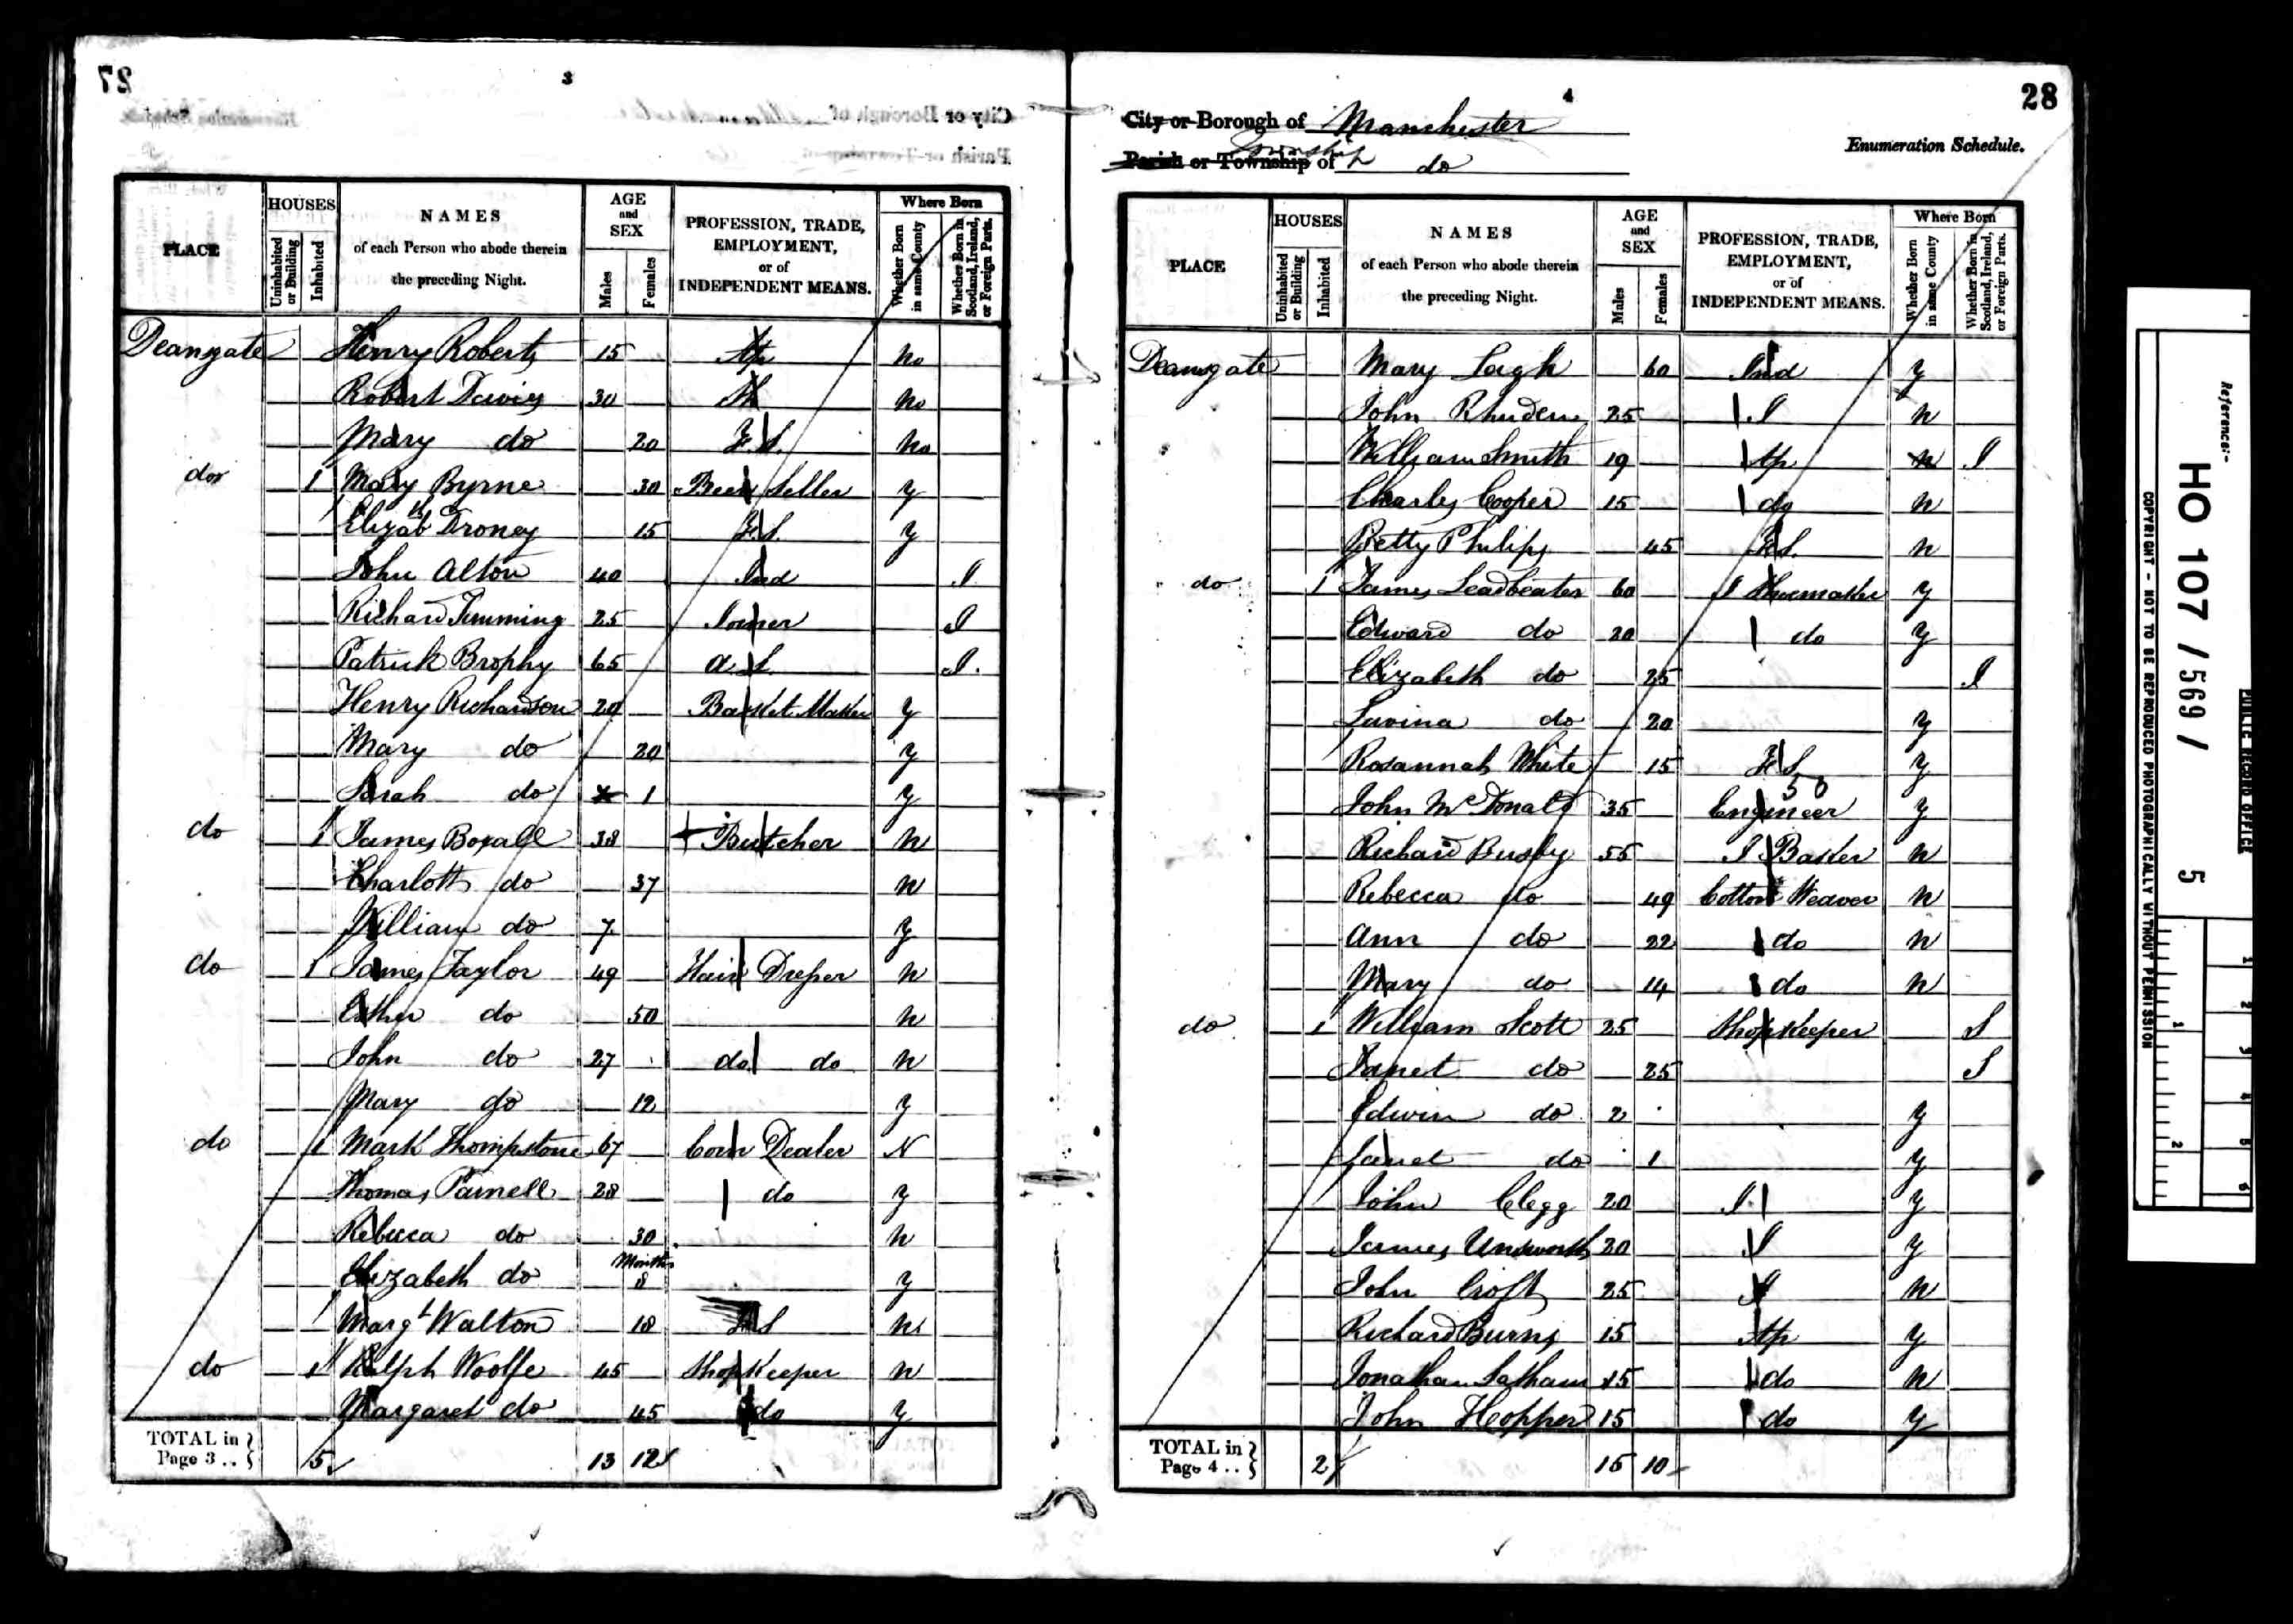 27
3
HOUSES
AGE and SEX
Where Born
PLACE
Uninhabited or Building
Inhabited
NAMES of each Person who abode therein the preceding Night.
Males
Females
PROFESSION, TRADE, EMPLOYMENT, or of INDEPENDENT MEANS.
Whether Born in same County
Whether Born in Scotland, Ireland, or Foreign Parts.
Deansgate Henry Roberts 15 Ap No
Robert Davies 30 No
Mary do 20 F.S. No
do 1 Mary Byrne 30 Beer Seller y
Elizabth Droney 15 F.S. y
John Alton 40 Ind I
Richard Timming 25 Joiner I
Patrick Brophy 65 a. S. I.
Henry Richardson 20 Basket Maker y
Mary do 20 y
Sarah do 1 y
do 1 James Boxall 38 Butcher N
Charlott do 37 N
William do 7 y
do 1 James Taylor 49 Hair Dresser N
Esther do 50 N
John do 27 do do N
Mary do 12 y
do 1 Mark Thompstone 67 Corn Dealer N
Thomas Parnell 28 do y
Rebecca do 30 N
Elizabeth do Months 8 y
Margt Walton 18 F S N
do 1 Ralph Woolfe 45 Shopkeeper N
Margaret do 45 do y
TOTAL in Page 3 .. } 5 13 12
4
28
City or Borough of Manchester
Parish or Township of Township do
Enumeration Schedule.
HOUSES
AGE and SEX
Where Born
PLACE
Uninhabited or Building
Inhabited
NAMES of each Person who abode therein the preceding Night.
Males
Females
PROFESSION, TRADE, EMPLOYMENT, or of INDEPENDENT MEANS.
Whether Born in same County
Whether Born in Scotland, Ireland, or Foreign Parts.
Deansgate Mary Leigh 60 Ind y
John Rhuden 25 J N
William Smith 19 Ap I
Charles Cooper 15 do N
Betty Philips 45 F.S. N
do 1 James Leadbeater 60 J Shoemaker y
Edward do 20 do y
Elizabeth do 25 I
Lavina do 20 y
Rosannah White 15 F S y
John McDonald 35 Engineer y
Richard Busby 55 J Baker N
Rebecca do 49 Cotton Weaver N
Ann do 22 do N
Mary do 14 do N
do 1 William Scott 25 Shopkeeper S
Janet do 25 S
Edwin do 2 y
Janet do 1 y
John Clegg 20 J. y
James Unsworth 20 J y
John Croft 25 J N
Richard Burns 15 Ap y
Jonathan Latham 15 do N
John Hopper 15 do y
TOTAL in Page 4 .. } 2 15 10
Reference:-
HO 107/569/ 5
PUBLIC RECORD OFFICE
COPYRIGHT - NOT TO BE REPRODUCED PHOTOGRAPHICALLY WITHOUT PERMISSION
1 2 3 4 5 6
1 2